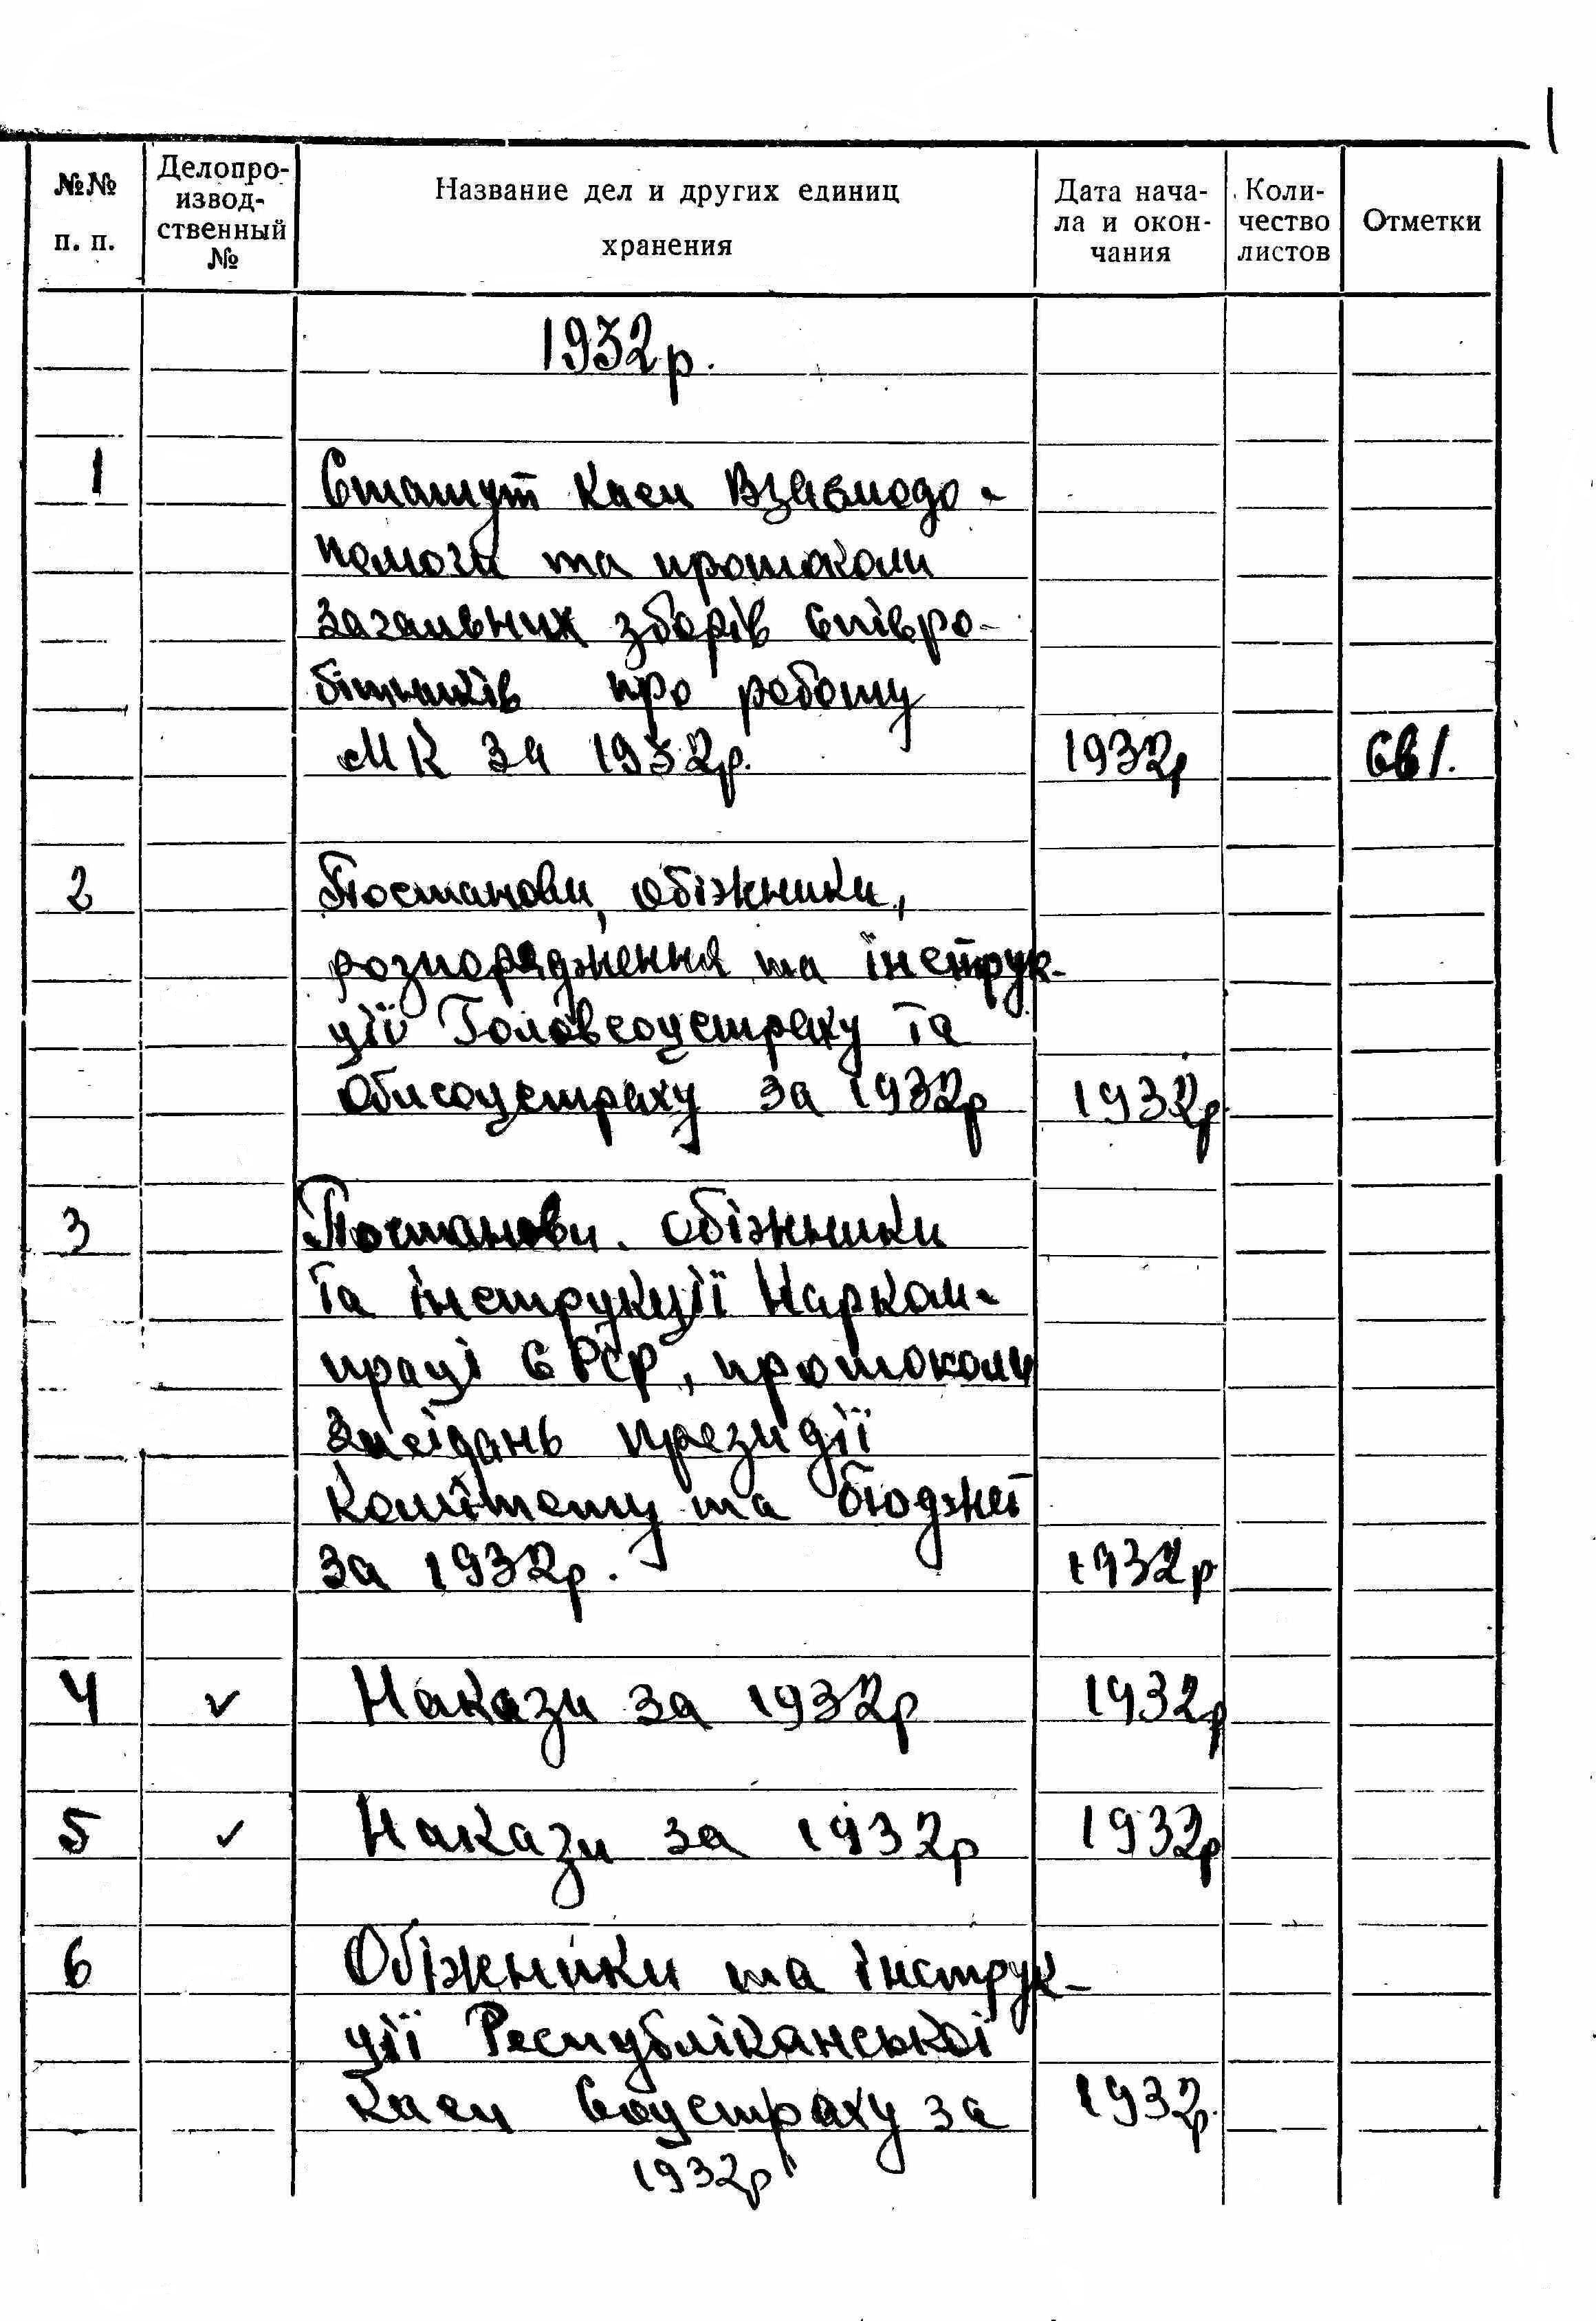 1
№№ п. п.
Делопро-
извод-
ственный
№
Название дел и других единиц
хранения
Дата нача-
ла и окон-
чания
Коли-
чество
листов
Отметки
1932р.
1 Статут каси взаємодо-
помоги та протоколи
загальних зборів співро-
бітників про роботу
МК за 1932р. 1932р Св 1.
2 Постанови, обіжники,
розпорядження та інструк-
ції Головсоцстраху та
Облсоцстраху за 1932р 1932р.
3 Постанови. обіжники
та інструкції Нарком-
праці СРСР, протоколи
засідань президії
комітету та бюджет
за 1932р. 1932р
4 ✓ Накази за 1932р 1932р
5 ✓ Накази за 1932р 1932р
6 Обіжники та інструк-
ції Республіканської
каси Соцстраху за 1932р.
1932р